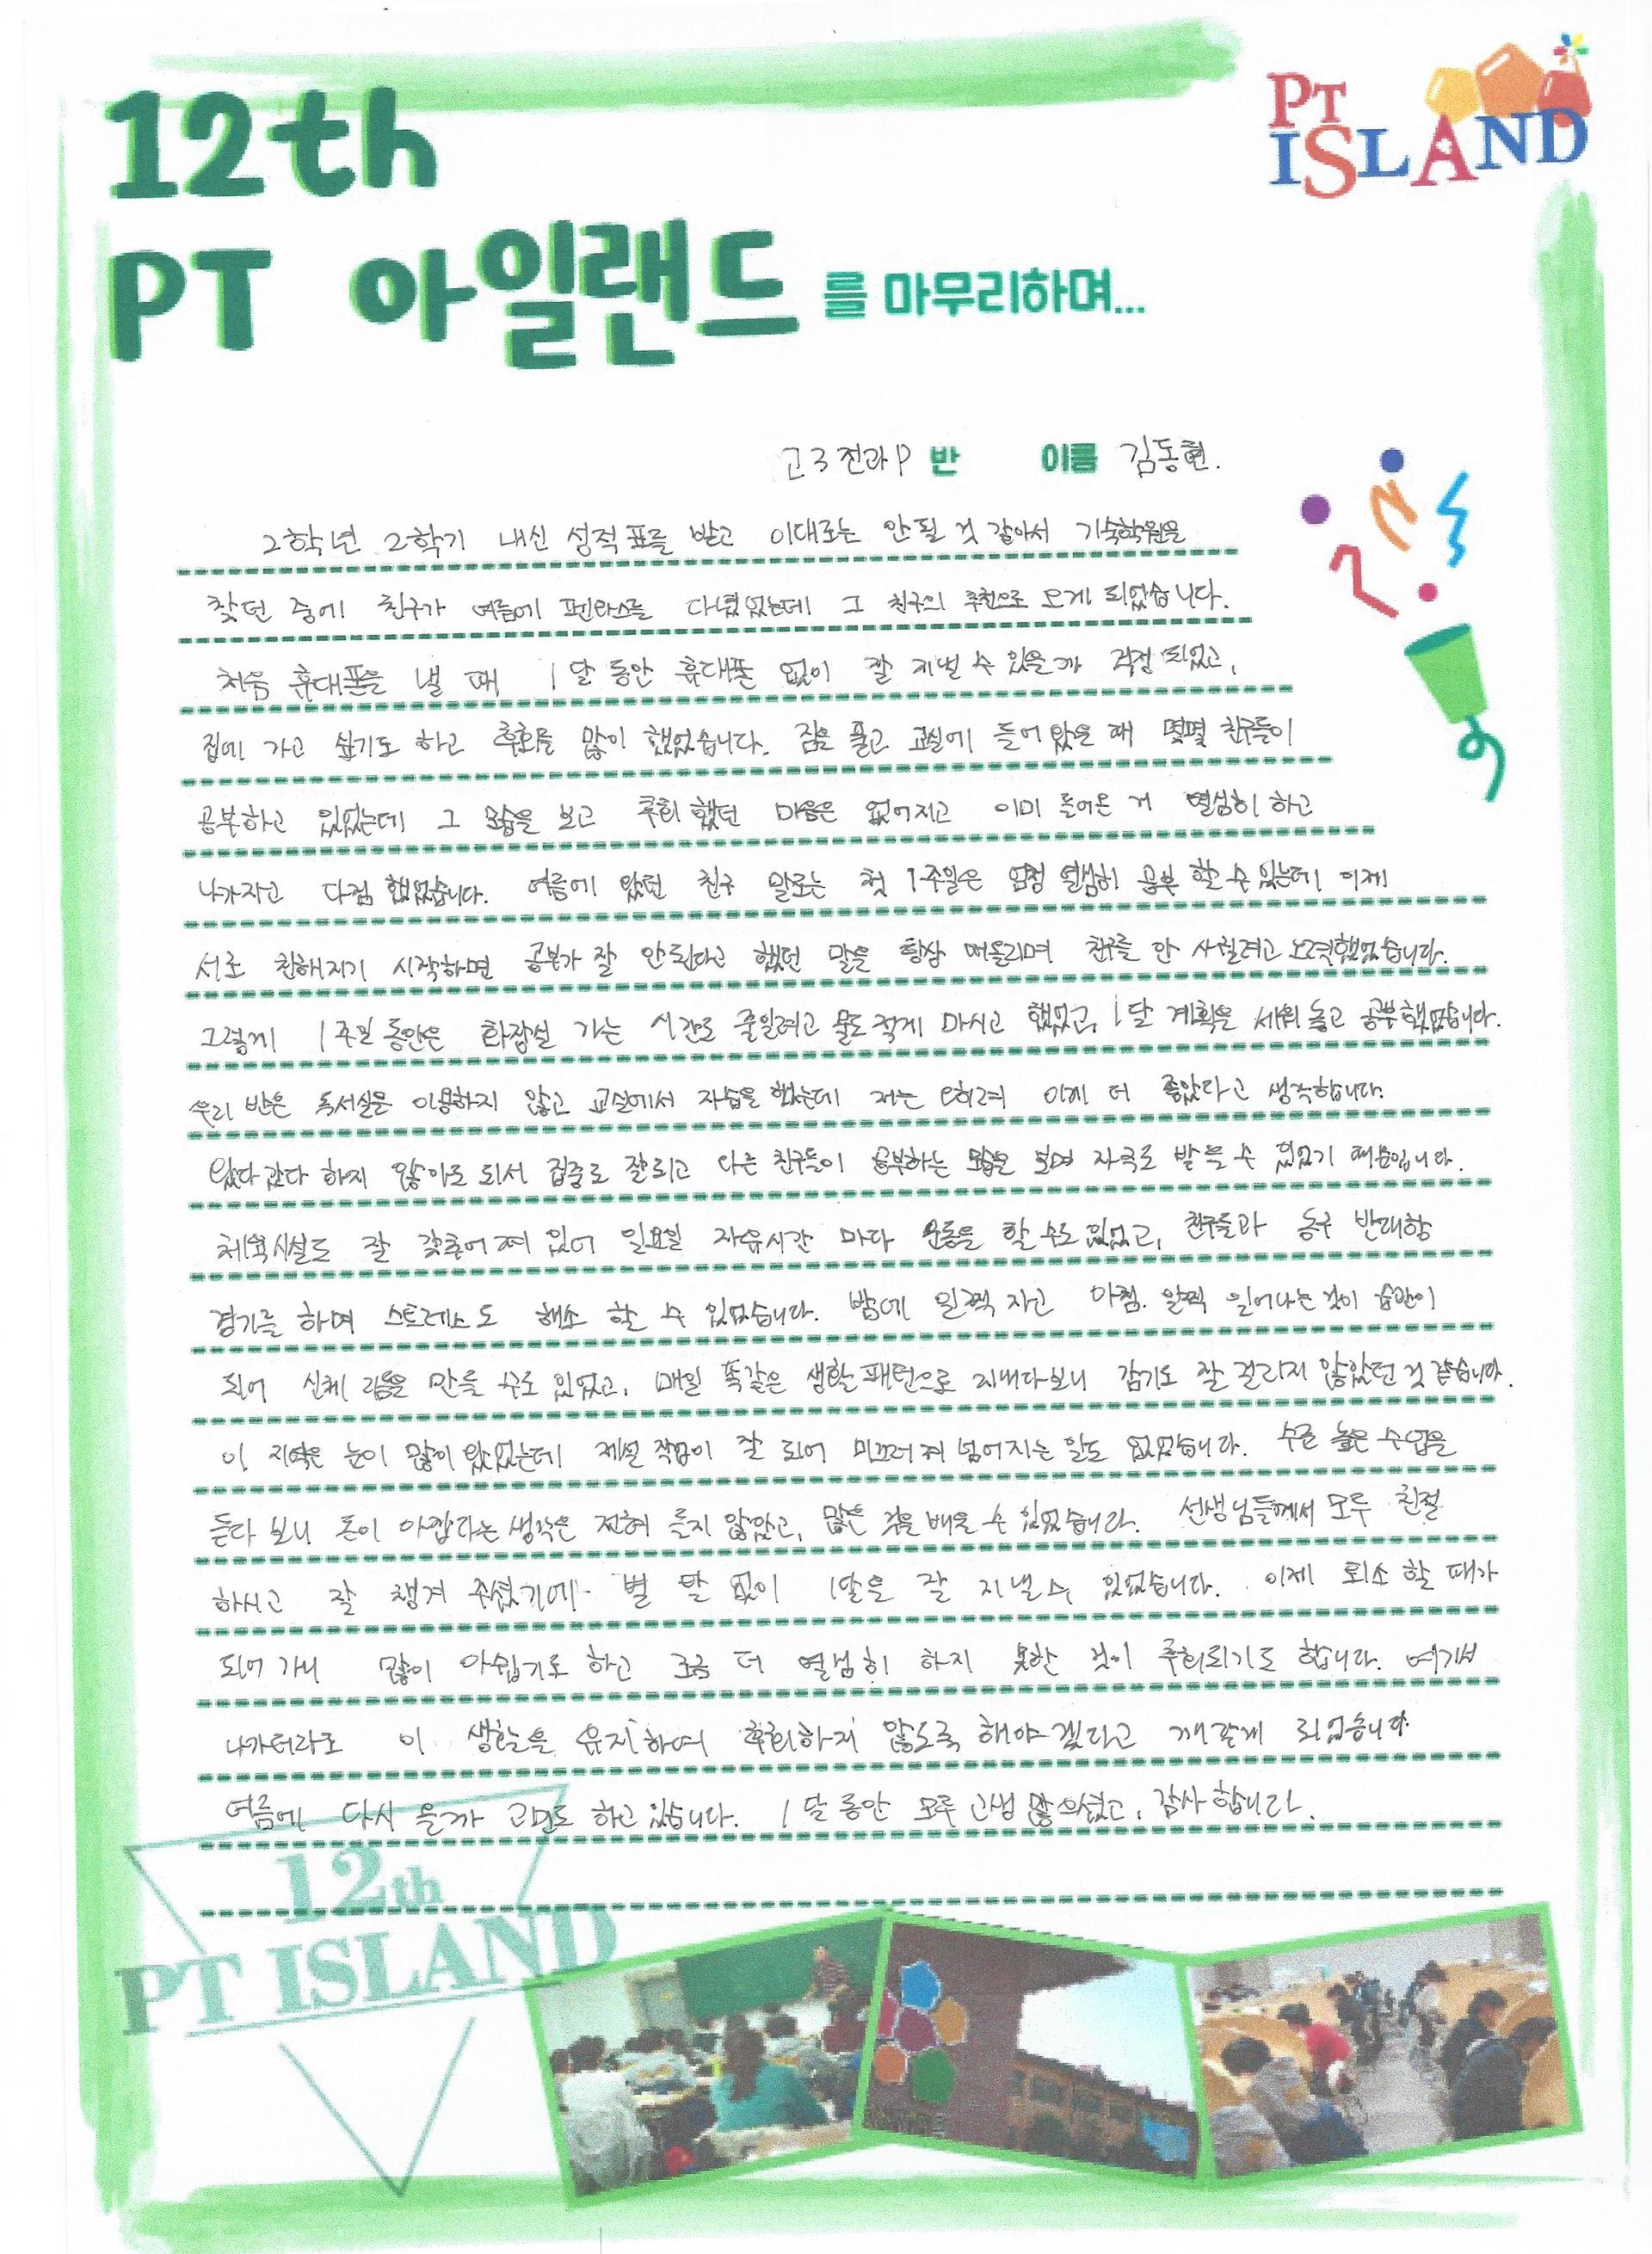 12th
PT ISLAND
PT 아일랜드를 마무리하며...
고3 전과P 반 이름 김동현.
2학년 2학기 내신 성적표를 받고 이대로는 안될 것 같아서 기숙학원을
찾던 중에 친구가 여름에 펜타스를 다녔었는데 그 친구의 추천으로 오게 되었습니다.
처음 휴대폰을 낼 때 1달 동안 휴대폰 없이 잘 지낼 수 있을까 걱정 되었고,
집에 가고 싶기도 하고 후회를 많이 했었습니다. 짐을 풀고 교실에 들어 왔을 때 몇몇 친구들이
공부하고 있었는데 그 모습을 보고 후회 했던 마음은 없어지고 이미 들어온 거 열심히 하고
나가자고 다짐 했었습니다. 여름에 왔던 친구 말로는 첫 1주일은 엄청 열심히 공부 할 수 있는데 이제
서로 친해지기 시작하면 공부가 잘 안된다고 했던 말을 항상 떠올리며 친구를 안 사귈려고 노력했었습니다.
그렇게 1주일 동안은 화장실 가는 시간도 줄일려고 물도 적게 마시고 했었고, 1달 계획을 세워 놓고 공부했었습니다.
우리 반은 독서실을 이용하지 않고 교실에서 자습을 했는데 저는 오히려 이게 더 좋았다고 생각합니다.
왔다 갔다 하지 않아도 되서 집중도 잘되고 다른 친구들이 공부하는 모습을 보며 자극도 받을 수 있었기 때문입니다.
체육시설도 잘 갖추어 져 있어 일요일 자유시간 마다 운동을 할 수도 있었고, 친구들과 농구 반대항
경기를 하며 스트레스도 해소 할 수 있었습니다. 밤에 일찍 자고 아침 일찍 일어나는 것이 습관이
되어 신체 리듬을 만들 수도 있었고, 매일 똑같은 생활 패턴으로 지내다보니 감기도 잘 걸리지 않았던 것 같습니다.
이 지역은 눈이 많이 왔었는데 제설 작업이 잘 되어 미끄러져 넘어지는 일도 없었습니다. 수준 높은 수업을
듣다 보니 돈이 아깝다는 생각은 전혀 들지 않았고, 많은 것을 배울 수 있었습니다. 선생님들께서 모두 친절
하시고 잘 챙겨 주셨기에 별 탈 없이 1달을 잘 지낼 수 있었습니다. 이제 퇴소 할 때가
되어 가니 많이 아쉽기도 하고 조금 더 열심히 하지 못한 것이 후회되기도 합니다. 여기서
나가더라도 이 생활을 유지하며 후회하지 않도록 해야겠다고 깨닫게 되었습니다
여름에 다시 올까 고민도 하고 있습니다. 1달 동안 모두 고생 많으셨고, 감사 합니다.
12th
PT ISLAND